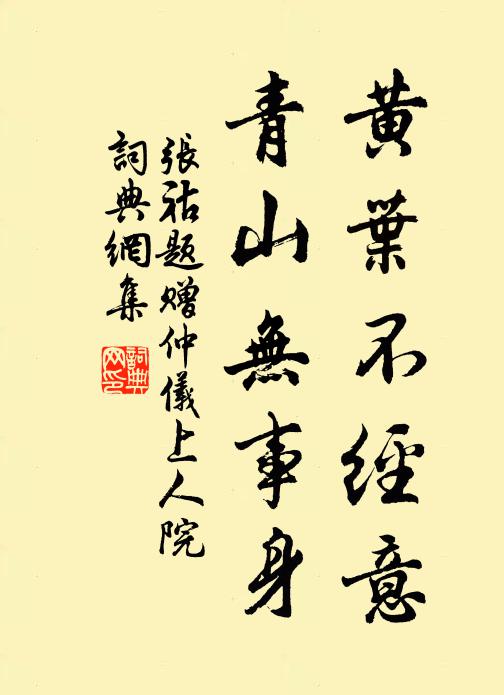 黃葉不經意
青山無事身
張祜題贈仲儀上人院
詞典網集
詞典網印